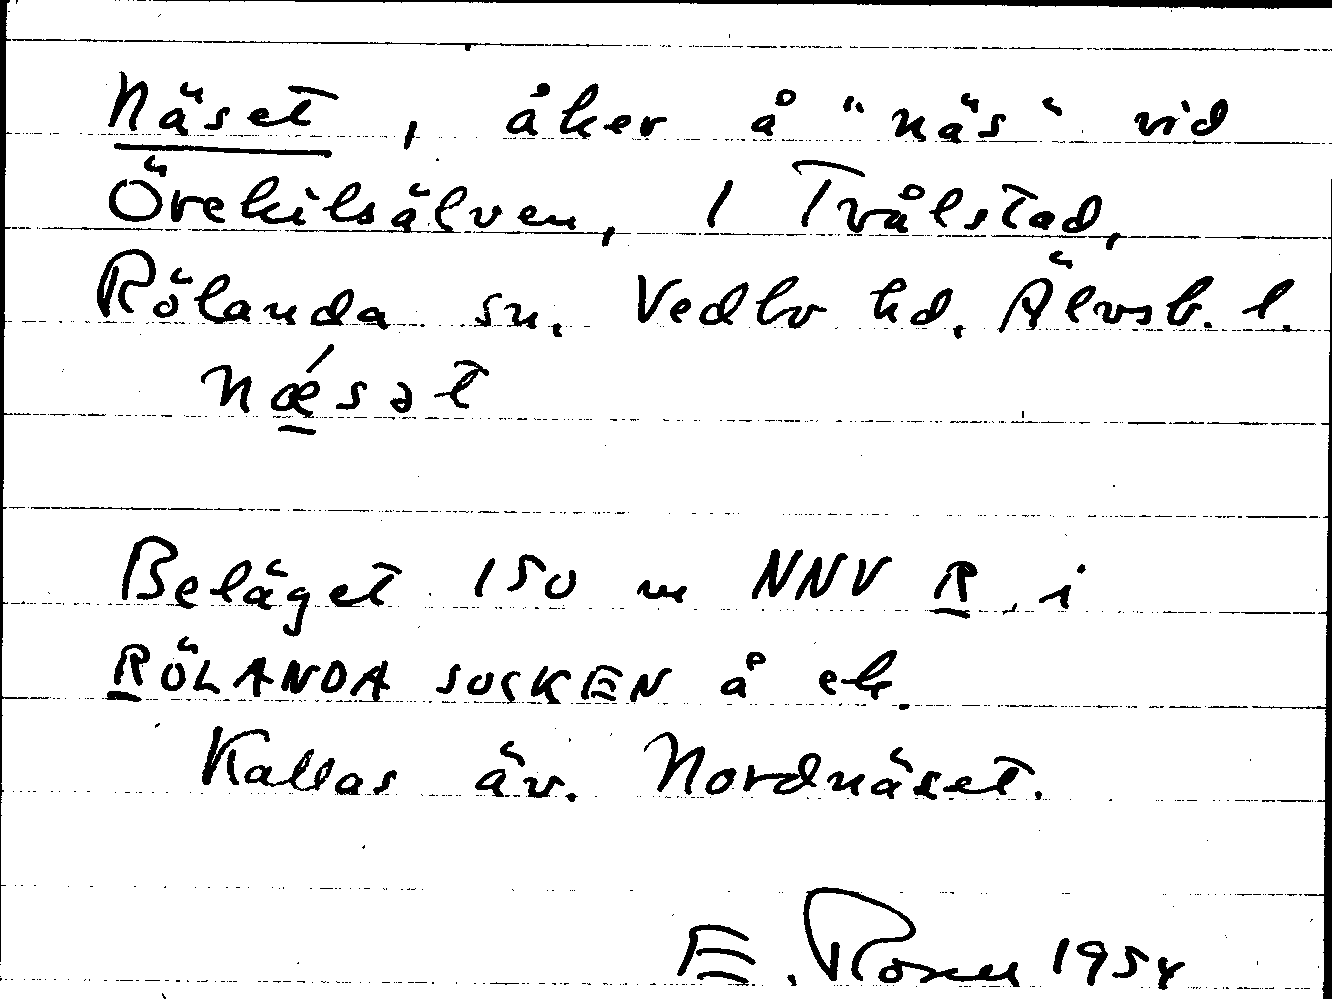 Näset, åker å "näs" vid
Örekilsälven, 1 Tvålstad,
Rölanda sn. Vedbo hd. Älvsb. l.
nǽ̱sət
Beläget 150 m NNV R i
RÖLANDA SOCKEN å ek.
Kallas äv. Nordnäset.
E. Rosell 1954